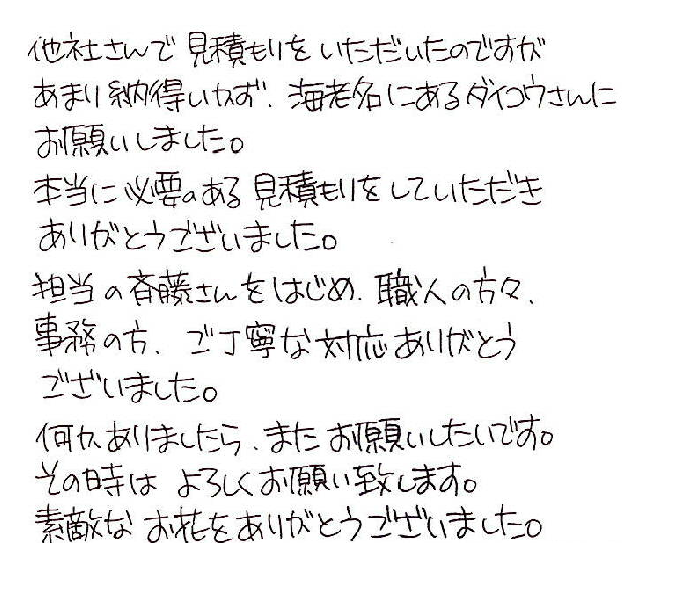 他社さんで見積もりをいただいたのですが
あまり納得いかず、海老名にあるダイコウさんに
お願いしました。
本当に必要のある見積もりをしていただき
ありがとうございました。
担当の斉藤さんをはじめ、職人の方々、
事務の方、ご丁寧な対応ありがとう
ございました。
何かありましたら、またお願いしたいです。
その時はよろしくお願い致します。
素敵なお花をありがとうございました。